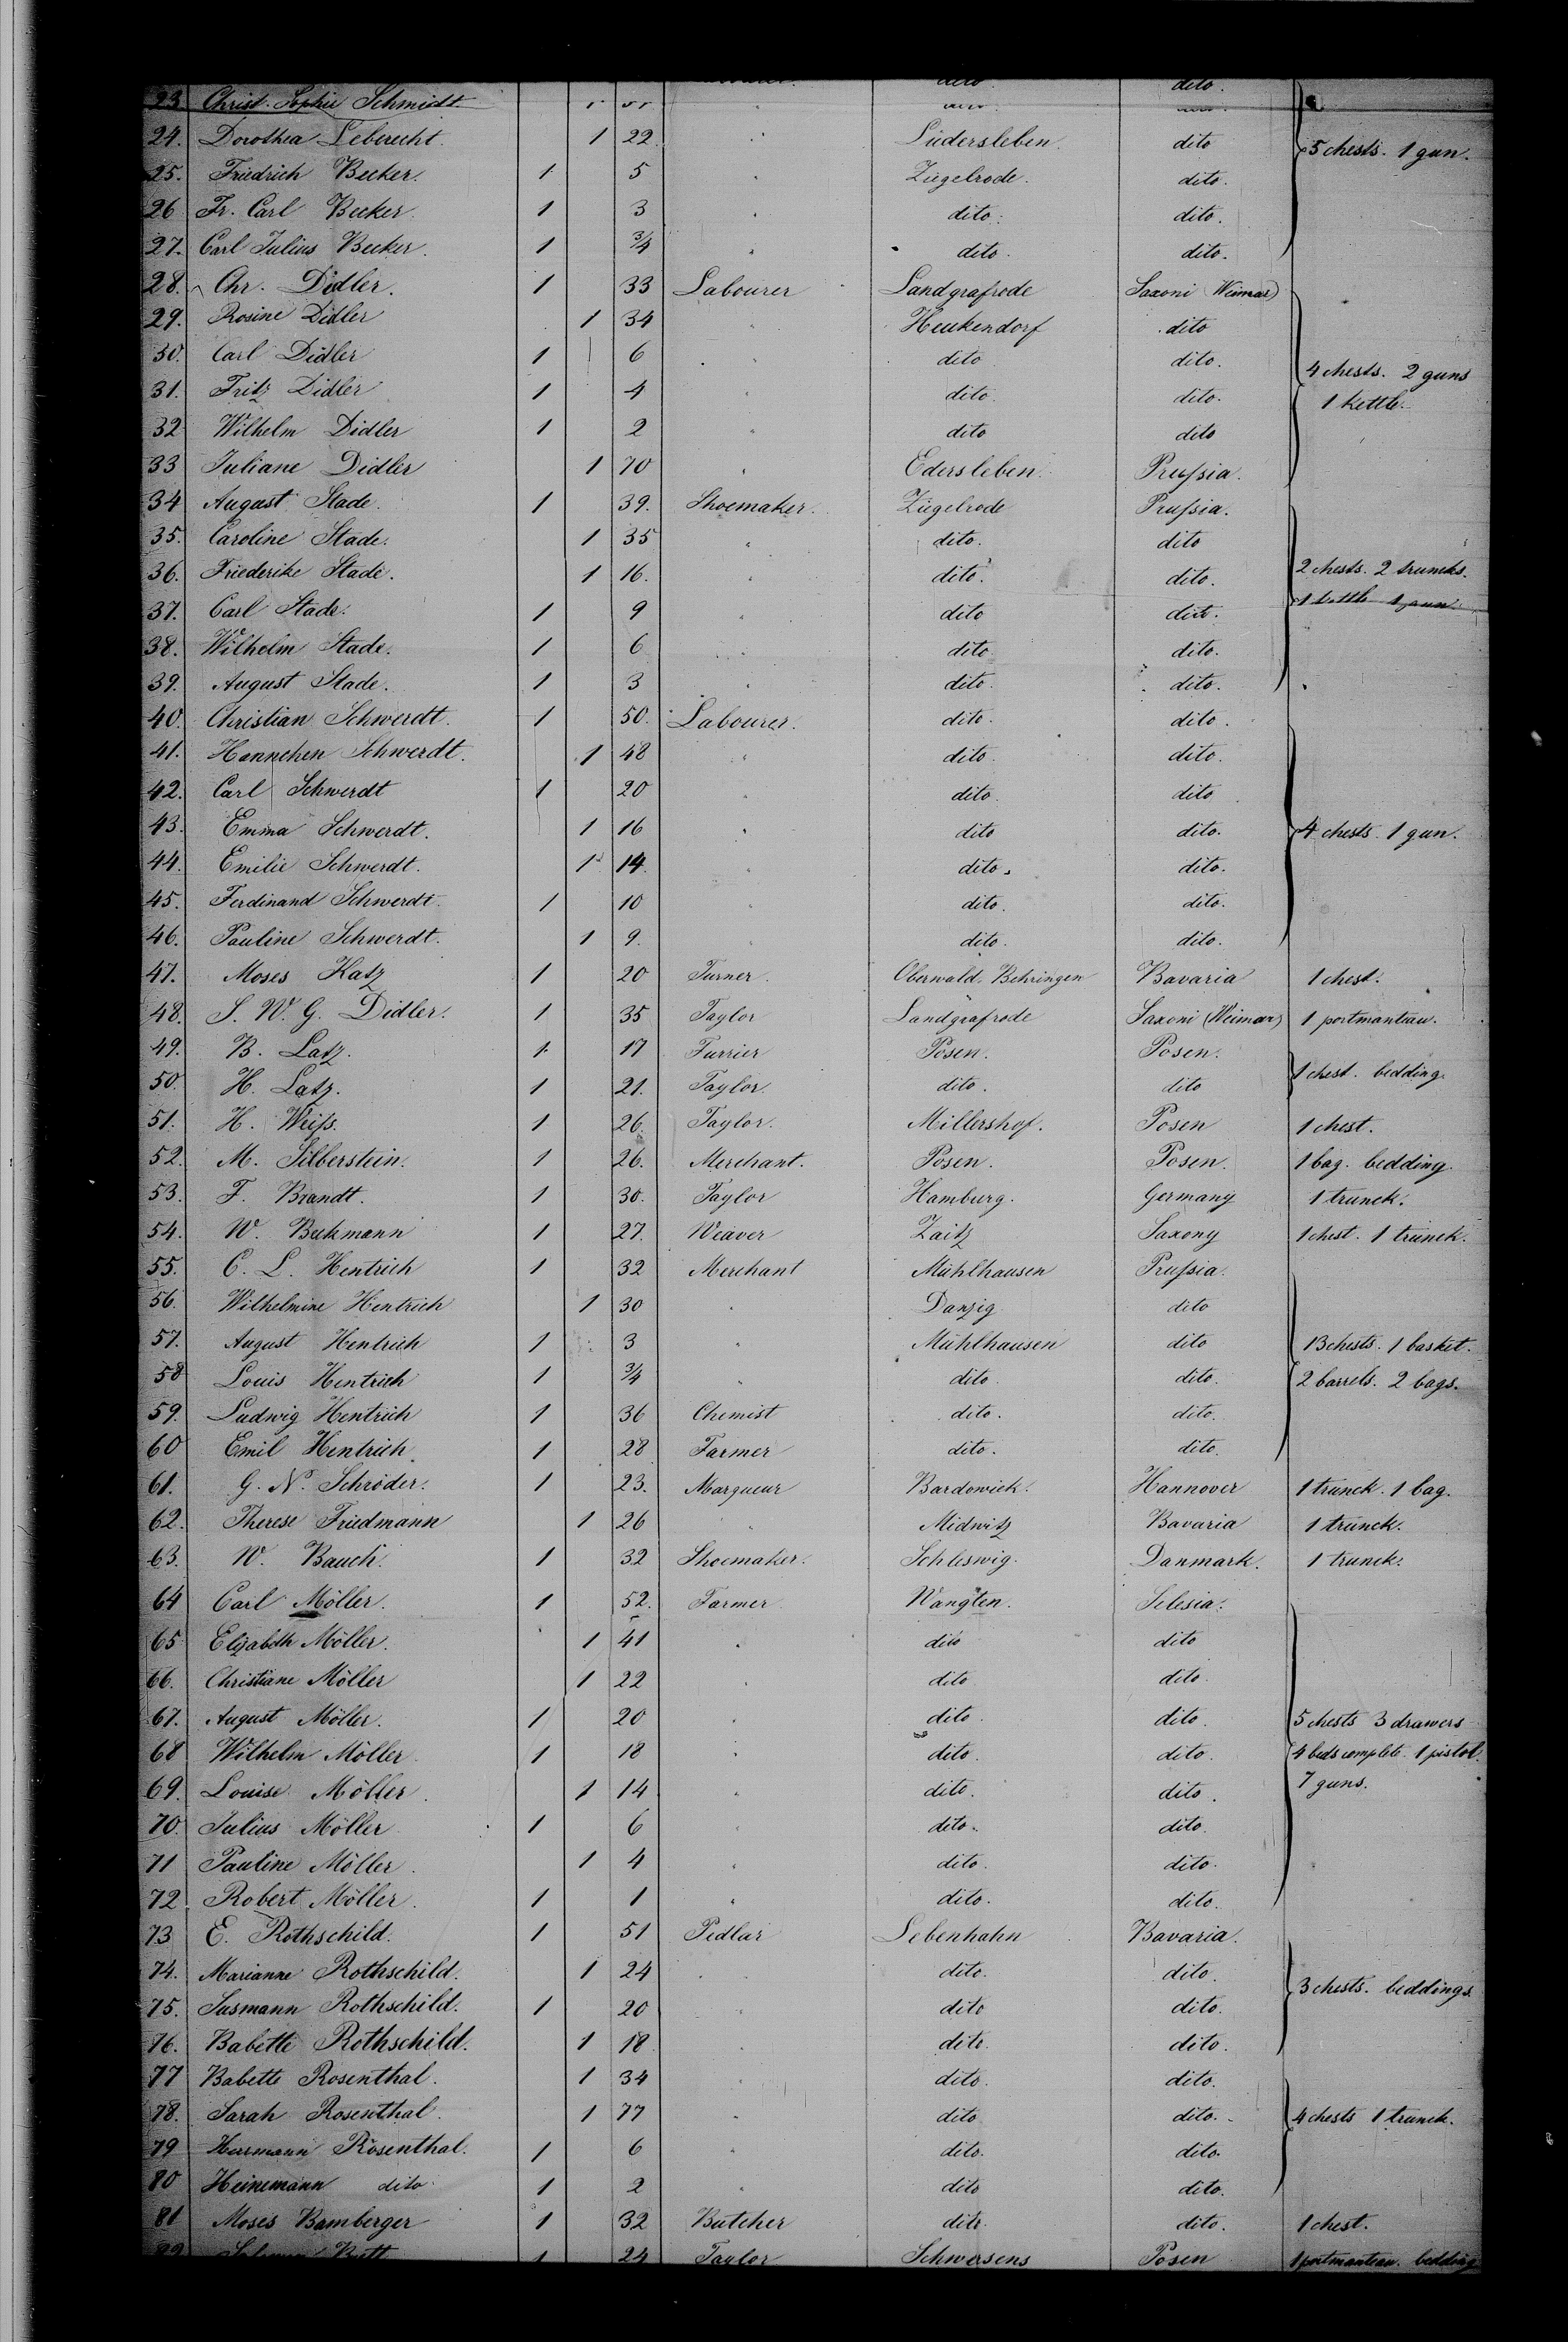 23 Christ. Sophie Schmidt
24. Dorothea Leberecht. 1 22 Lüdersleben. dito 5 chests. 1 gun.
25. Friedrich Becker. 1 5 Ziegelrode. dito.
26 Fr. Carl Becker. 1 3 dito. dito.
27. Carl Julius Becker. 1 3/4 dito. dito.
28. Chr. Didler. 1 33 Labourer Landgrafrode Saxoni (Weimar)
29. Rosine Didler 1 34 Heukendorf dito
30. Carl Didler 1 6 dito dito. 4 chests. 2 guns
31. Fritz Didler 1 4 dito. dito. 1 kettle.
32 Wilhelm Didler 1 2 dito dito
33 Juliane Didler 1 70 Edersleben. Prussia.
34 August Stade. 1 39. Shoemaker. Ziegelrode Prussia.
35. Caroline Stade. 1 35 dito. dito
36. Friederike Stade. 1 16. dito. dito. 2 chests. 2 truncks.
37. Carl Stade. 1 9 dito dito. 1 kettle 1 gun.
38. Wilhelm Stade. 1 6 dito dito.
39. August Stade. 1 3 dito. dito.
40. Christian Schwerdt. 1 50. Labourer. dito. dito.
41. Hannchen Schwerdt. 1 48 dito. dito.
42. Carl Schwerdt 1 20 dito. dito
43. Emma Schwerdt. 1 16 dito dito. 4 chests. 1 gun.
44. Emilie Schwerdt. 1 14. dito. dito.
45. Ferdinand Schwerdt. 1 10 dito. dito.
46. Pauline Schwerdt. 1 9. dito. dito.
47. Moses Katz 1 20 Turner. Oberwald. Behringen Bavaria 1 chest.
48. S. W. G. Didler. 1 35 Taylor Landgrafrode Saxoni (Weimar) 1 portmanteau.
49. B. Latz. 1 17 Furrier Posen. Posen.
50. H. Latz. 1 21. Taylor. dito. dito 1 chest. bedding.
51. H. Weiss. 1 26. Taylor. Millershof. Posen 1 chest.
52. M. Silberstein. 1 26. Merchant. Posen. Posen. 1 bag. bedding.
53. F. Brandt. 1 30. Taylor Hamburg. Germany 1 trunck.
54. W. Beckmann 1 27. Weaver Zaitz Saxony 1 chest. 1 trunck.
55. C. L. Hentrich 1 32 Merchant Mühlhausen Prussia.
56. Wilhelmine Hentrich 1 30 Danzig dito
57. August Hentrich 1 3 Mühlhausen dito 13 chests. 1 basket.
58 Louis Hentrich 1 3/4 dito. dito. 2 barrels. 2 bags.
59. Ludwig Hentrich 1 36 Chemist dito. dito.
60 Emil Hentrich 1 28 Farmer dito. dito.
61. G. N. Schröder. 1 23. Marqueur Bardowick. Hannover 1 trunck. 1 bag.
62. Therese Friedmann 1 26 Midwitz Bavaria 1 trunck.
63. W. Bauch. 1 32 Shoemaker. Schleswig. Danmark. 1 trunck.
64 Carl Möller. 1 52. Farmer Wangten. Silesia.
65 Elizabeth Möller. 1 41 dito dito
66. Christiane Möller 1 22 dito dito.
67. August Möller. 1 20 dito. dito. 5 chests 3 drawers
68 Wilhelm Möller 1 18 dito. dito. 4 beds complete. 1 pistol.
69. Louise Möller. 1 14 dito. dito. 7 guns.
70. Julius Möller 1 6 dito. dito.
71 Pauline Möller. 1 4 dito. dito.
72. Robert Möller. 1 1 dito. dito.
73 E. Rothschild. 1 51 Pedlar Lebenhahn Bavaria.
74. Marianne Rothschild. 1 24 dito. dito.
75. Susmann Rothschild. 1 20 dito dito. 3 chests. beddings.
76. Babette Rothschild. 1 18 dito. dito.
77 Babette Rosenthal. 1 34 dito. dito.
78. Sarah Rosenthal. 1 77 dito dito. 4 chests 1 trunck.
79 Herrmann Rosenthal. 1 6 dito. dito.
80 Heinemann dito 1 2 dito dito.
81 Moses Bamberger 1 32 Butcher dito. dito. 1 chest.
1 24 Taylor Schwersens Posen 1 portmanteau. bedding